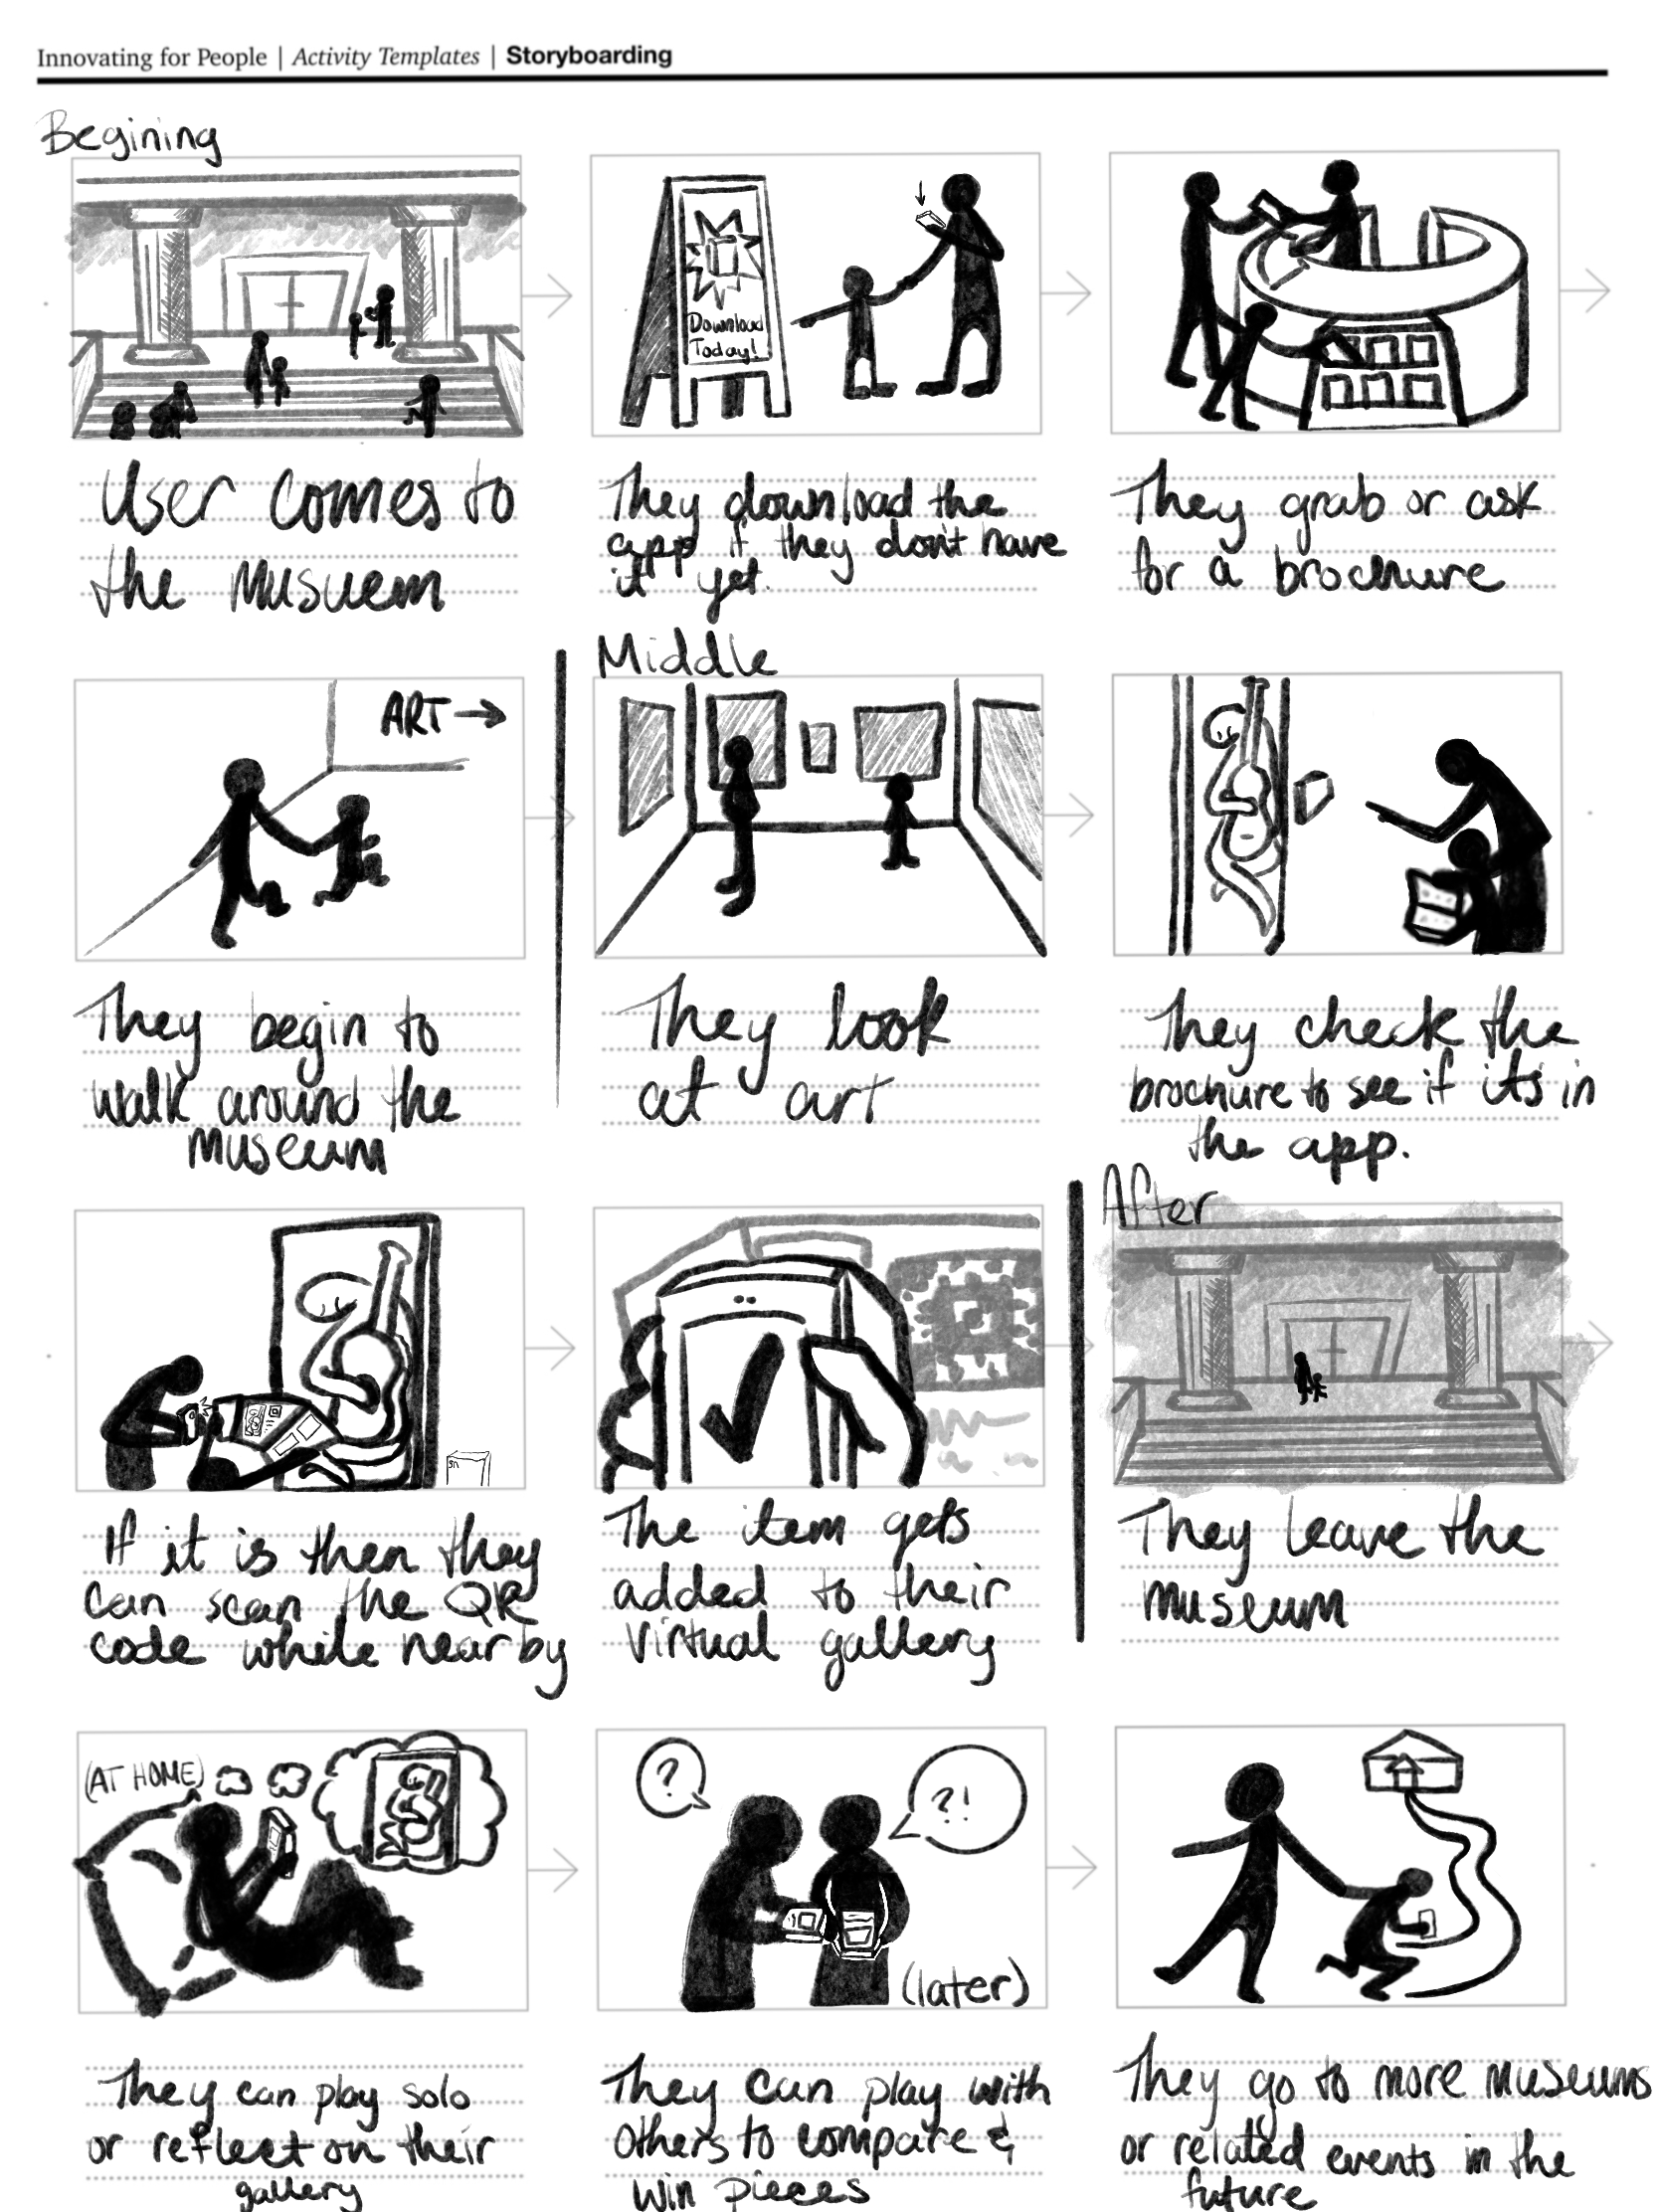 Innovating for People | Activity Templates | Storyboarding
Begining
Download
Today!
User comes to
the Musuem
They download the
app if they don't have
it yet.
They grab or ask
for a brochure
ART →
They begin to
walk around the
Museum
Middle
They look
at art
They check the
brochure to see if it's in
the app.
If it is then they
can scan the QR
code while nearby
The item gets
added to their
virtual gallery
After
They leave the
museum
(AT HOME)
They can play solo
or reflect on their
gallery
?
?!
(later)
They can play with
others to compare &
win pieces
They go to more museums
or related events in the
future